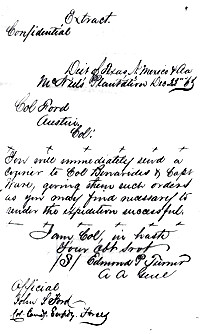 Extract
Confidential
Dist of Texas N. Mexico & Aa
McNeels Plantation Dec 25th 63
Col Ford
Austin
Col:
You will immediately send a
courier to Col Benavides & Capt
Ware, giving them such orders
as you may find necessary to
render the expedition successful.
I am Col, in haste
Your obt. svt
/S/ Edmund P. Turner
A A Genl
Official
John S Ford
Col Comdg Forces